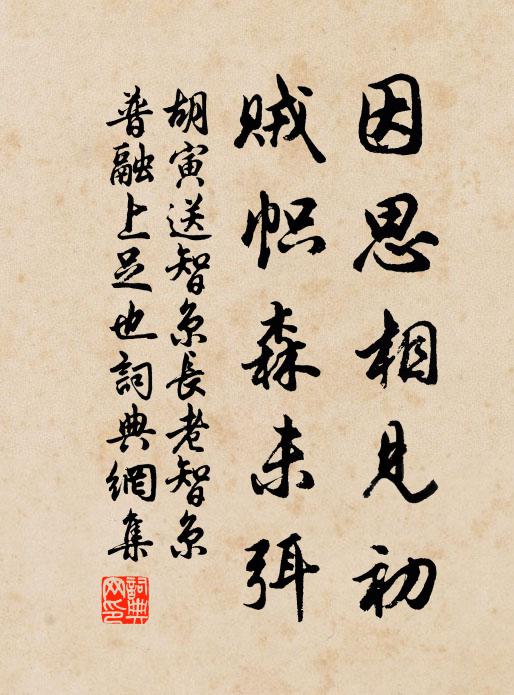 因思相見初
賊帜森未弭
胡寅送智京長老智京
普融上足也詞典網集
詞典网印